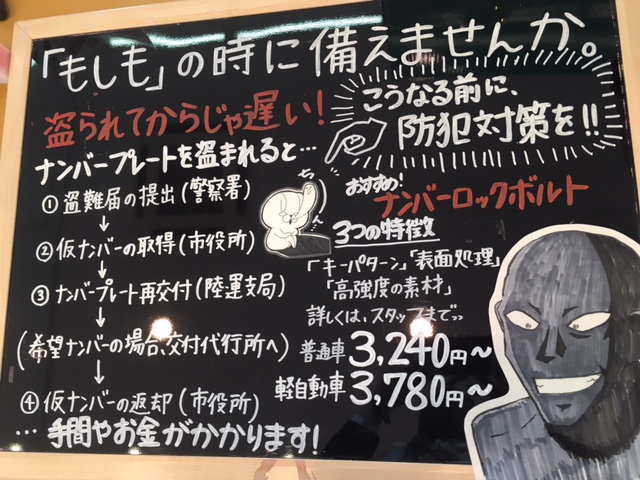 「もしも」の時に備えませんか。
盗られてからじゃ遅い!
ナンバープレートを盗まれると…
①盗難届の提出(警察署)
↓
②仮ナンバーの取得(市役所)
↓
③ナンバープレート再交付(陸運支局)
↓
(希望ナンバーの場合、交付代行所へ)
↓
④仮ナンバーの返却(市役所)
…手間やお金がかかります!
こうなる前に、
防犯対策を!!
おすすめ!
ナンバーロックボルト
3つの特徴
「キーパターン」「表面処理」
「高強度の素材」
詳しくは、スタッフまで。。
普通車3,240円~
軽自動車3,780円~